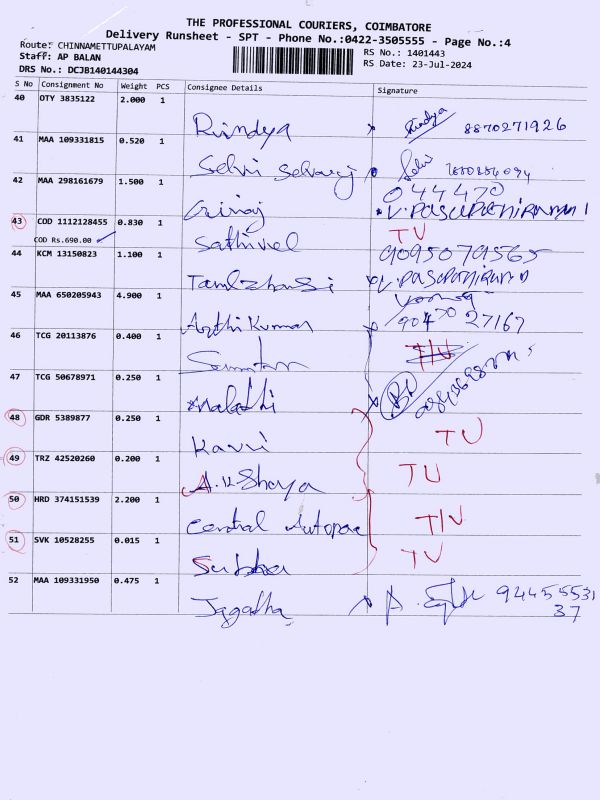 THE PROFESSIONAL COURIERS, COIMBATORE
Delivery Runsheet - SPT - Phone No.:0422-3505555 - Page No.:4
Route: CHINNAMETTUPALAYAM
Staff: AP BALAN
DRS No.: DCJB140144304
RS No.: 1401443
RS Date: 23-Jul-2024
S No Consignment No Weight PCS Consignee Details Signature
40 OTY 3835122 2.000 1
Rindya 8870271926
41 MAA 109331815 0.520 1
Selvi Selvaraj Selvi
42 MAA 298161679 1.500 1
044470
Giriraj
43 COD 1112128455 0.830 1
TU
COD Rs.690.00
Sathivel
44 KCM 13150823 1.100 1
9095079565
45 MAA 650205943 4.900 1
Arthi Kumar
46 TCG 20113876 0.400 1
T/U
47 TCG 50678971 0.250 1
Malathi
48 GDR 5389877 0.250 1
TU
Kavi
49 TRZ 42520260 0.200 1
TU
50 HRD 374151539 2.200 1
T/U
Central Autopac
51 SVK 10528255 0.015 1
TU
52 MAA 109331950 0.475 1
9445553137
Jagatha